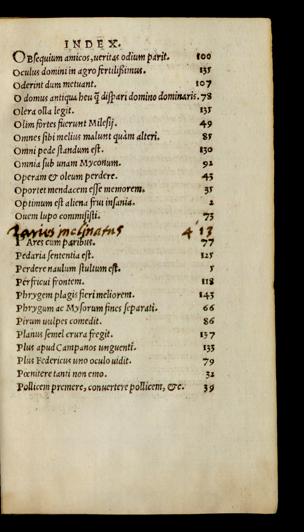 INDEX.
OBsequium amicos, ueritas odium parit. 100
Oculus domini in agro fertilißimus. 135
Oderint dum metuant. 107
O domus antiqua heu q̃ dispari domino dominaris. 78
Olera olla legit. 135
Olim fortes fuerunt Milesij. 49
Omnes sibi melius malunt quàm alteri. 85
Omni pede standum est. 130
Omnia sub unam Myconum. 92
Operam & oleum perdere. 43
Oportet mendacem esse memorem. 35
Optimum est aliena frui insania. 2
Ouem lupo commisisti. 73
inclinatus 413
PAres cum paribus. 77
Pedaria sententia est. 125
Perdere naulum stultum est. 5
Perfricui frontem. 118
Phrygem plagis fieri meliorem. 143
Phrygum ac Mysorum fines separati. 66
Pirum uulpes comedit. 86
Planus semel erura fregit. 137
Plus apud Campanos unguenti. 133
Plus Federicus uno oculo uidit. 79
Pœnitere tanti non emo. 32
Pollicem premere, conuertere pollicem, &c. 39